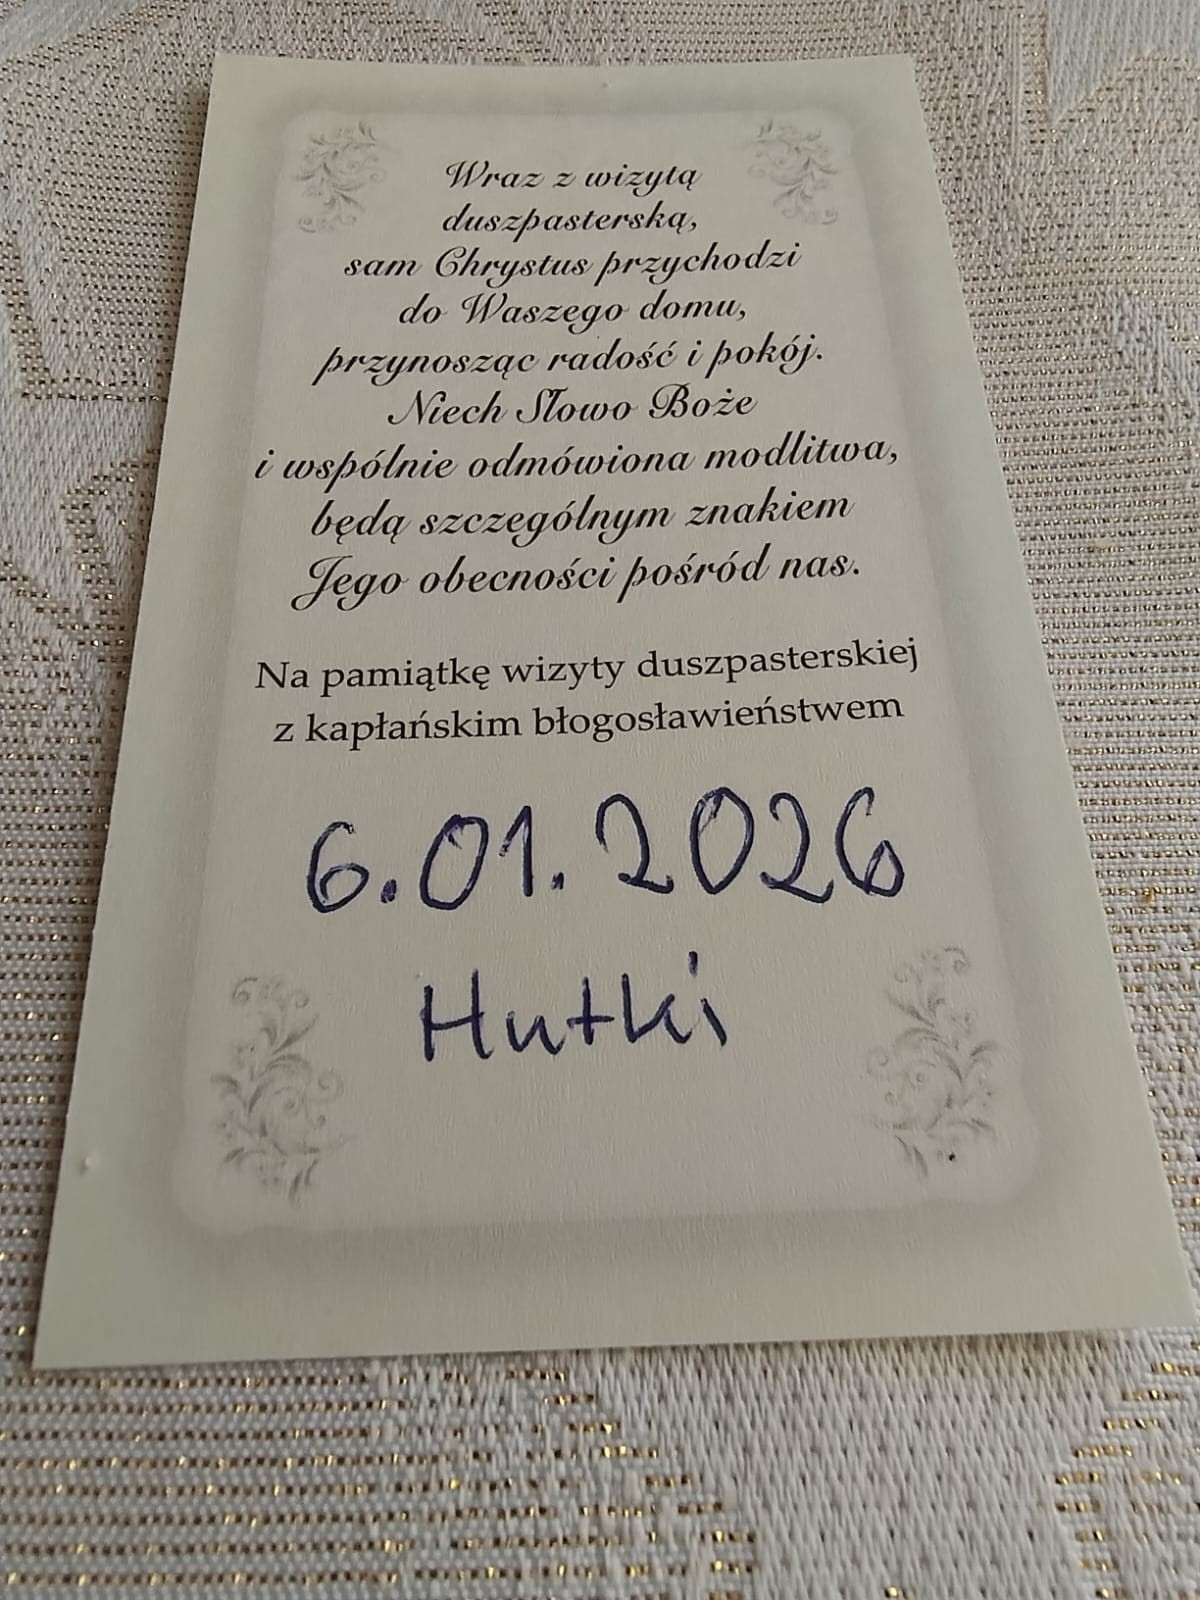 Wraz z wizytą
duszpasterską,
sam Chrystus przychodzi
do Waszego domu,
przynosząc radość i pokój.
Niech Słowo Boże
i wspólnie odmówiona modlitwa,
będą szczególnym znakiem
Jego obecności pośród nas.
Na pamiątkę wizyty duszpasterskiej
z kapłańskim błogosławieństwem
6.01.2026
Hutki